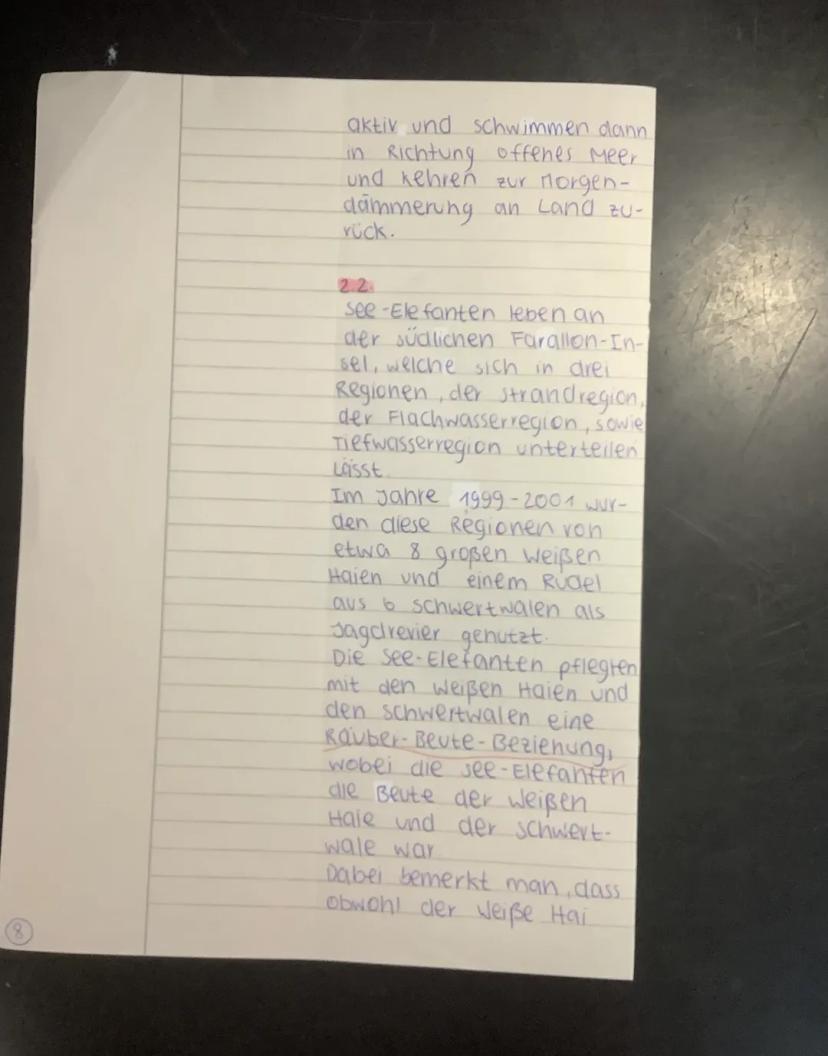 aktiv und schwimmen dann
in Richtung offenes Meer
und kehren zur Morgen-
dämmerung an Land zu-
rück.
2.2.
See-Elefanten leben an
der südlichen Farallon-In-
sel, welche sich in drei
Regionen, der Strandregion,
der Flachwasserregion, sowie
Tiefwasserregion unterteilen
lässt.
Im Jahre 1999-2001 wur-
den diese Regionen von
etwa 8 großen weißen
Haien und einem Rudel
aus 6 Schwertwalen als
Jagdrevier genutzt.
Die See-Elefanten pflegten
mit den weißen Haien und
den Schwertwalen eine
Räuber-Beute-Beziehung,
wobei die See-Elefanten
die Beute der weißen
Haie und der Schwert-
wale war
Dabei bemerkt man, dass
obwohl der weiße Hai
8